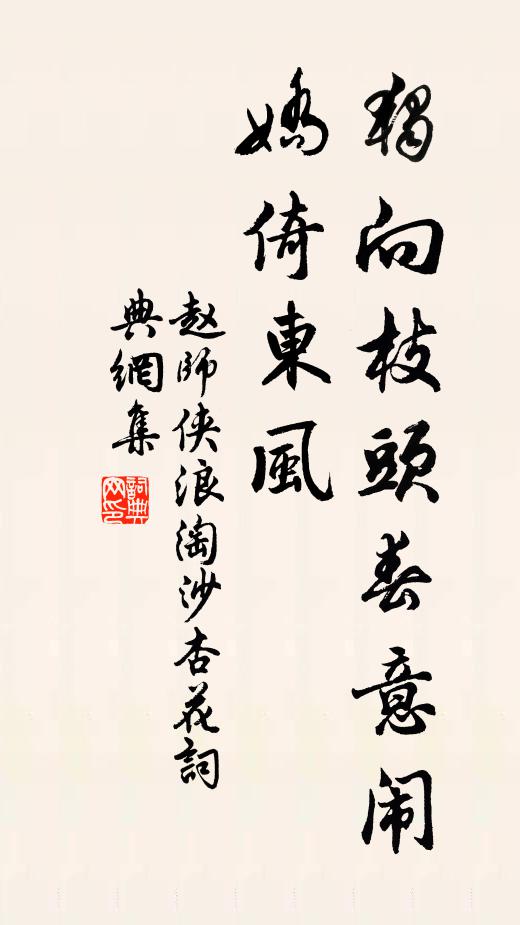 獨向枝頭春意闹
嬌倚東風
赵師侠浪淘沙杏花詞
典網集
詞典網印